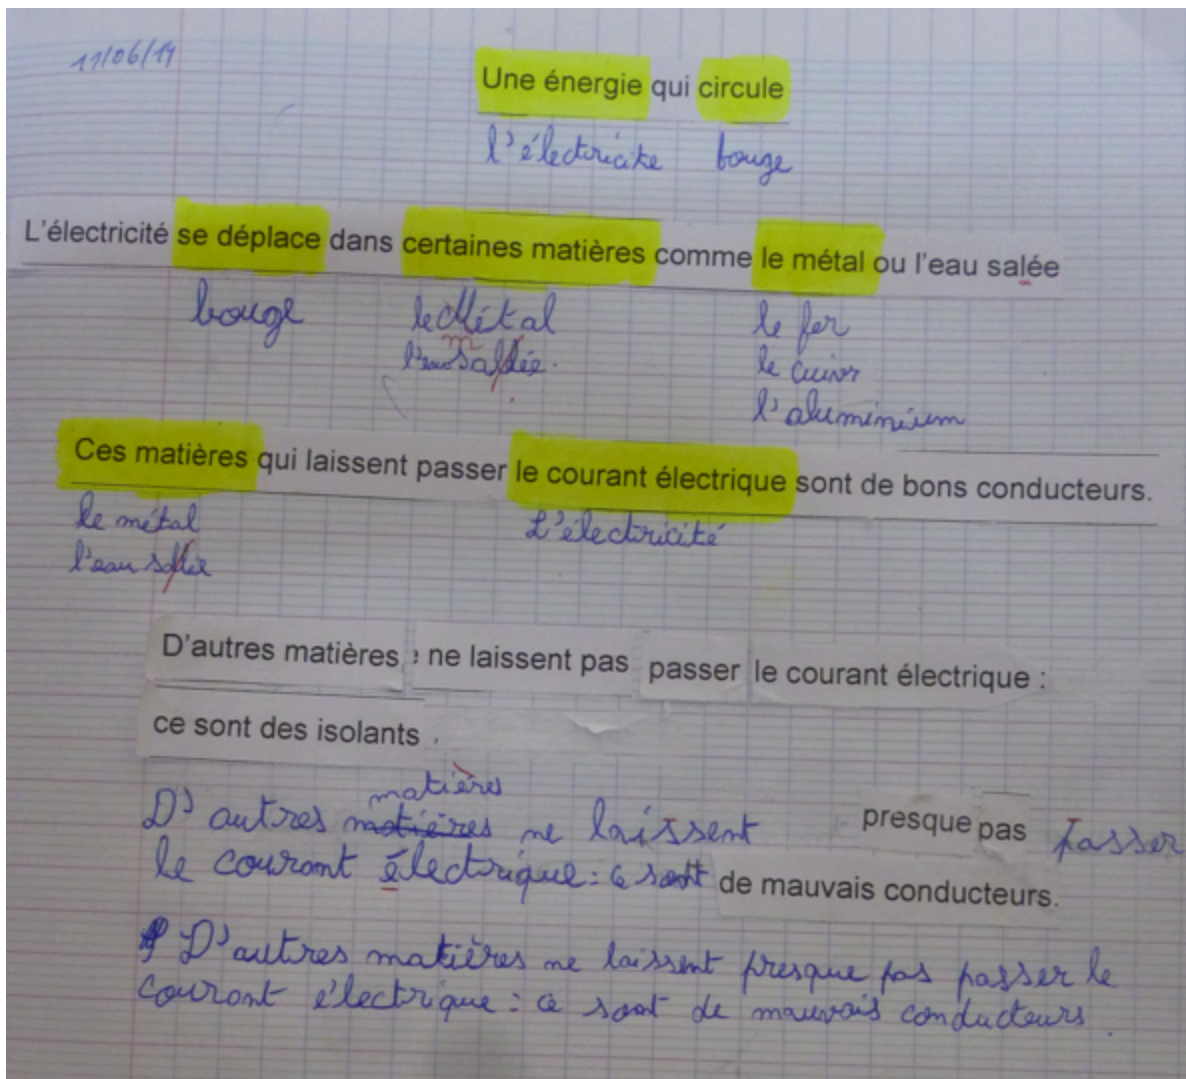 11/06/14
Une énergie qui circule
l'électricite bouge
L'électricité se déplace dans certaines matières comme le métal ou l'eau salée
bouge le Métal le fer
l'eau sallée. le cuivr
l'aluminium
Ces matières qui laissent passer le courant électrique sont de bons conducteurs.
le métal L'électricité
l'eau sallée
D'autres matières ne laissent pas passer le courant électrique :
ce sont des isolants .
matières
D'autres matières ne laissent presque pas passer
le courant électrique : ce sont de mauvais conducteurs.
D'autres matières ne laissent presque pas passer le
courant électrique : ce sont de mauvais conducteurs.